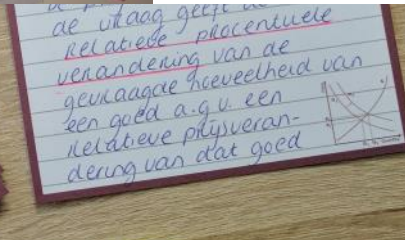 de vraag geeft de
relatieve procentuele
verandering van de
gevraagde hoeveelheid van
een goed a.g.v. een
relatieve prijsveran-
dering van dat goed